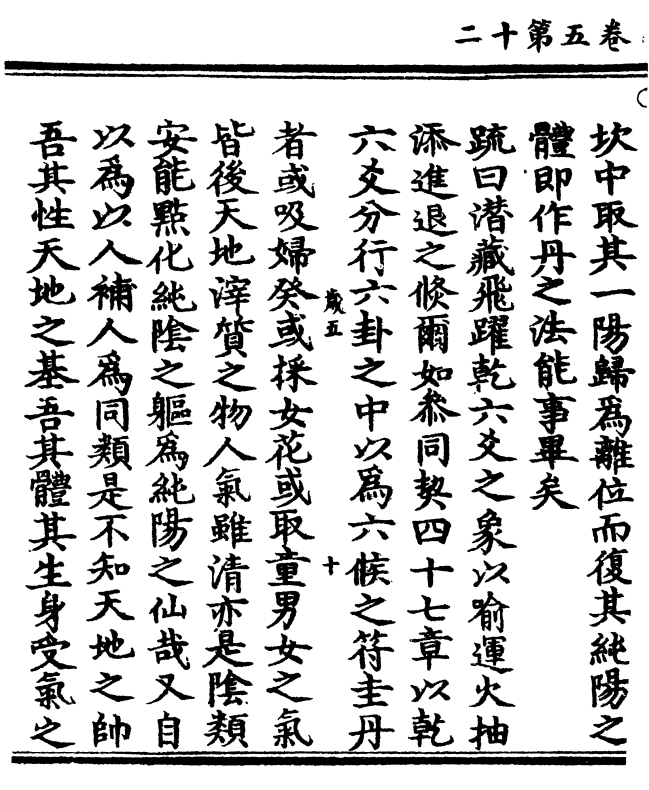 卷五第十二
坎中取其一陽歸為離位而復其純陽之
體即作丹之法能事畢矣
疏曰潜藏飛躍乾六爻之象以喻運火抽
添進退之候爾如叅同契四十七章以乾
六爻分行六卦之中以為六候之符圭丹
歲五
十
者或吸婦癸或採女花或取童男女之氣
皆後天地滓質之物人氣雖清亦是陰類
安能點化純陰之軀為純陽之仙哉又自
以為以人補人為同類是不知天地之帥
吾其性天地之基吾其體其生身受氣之